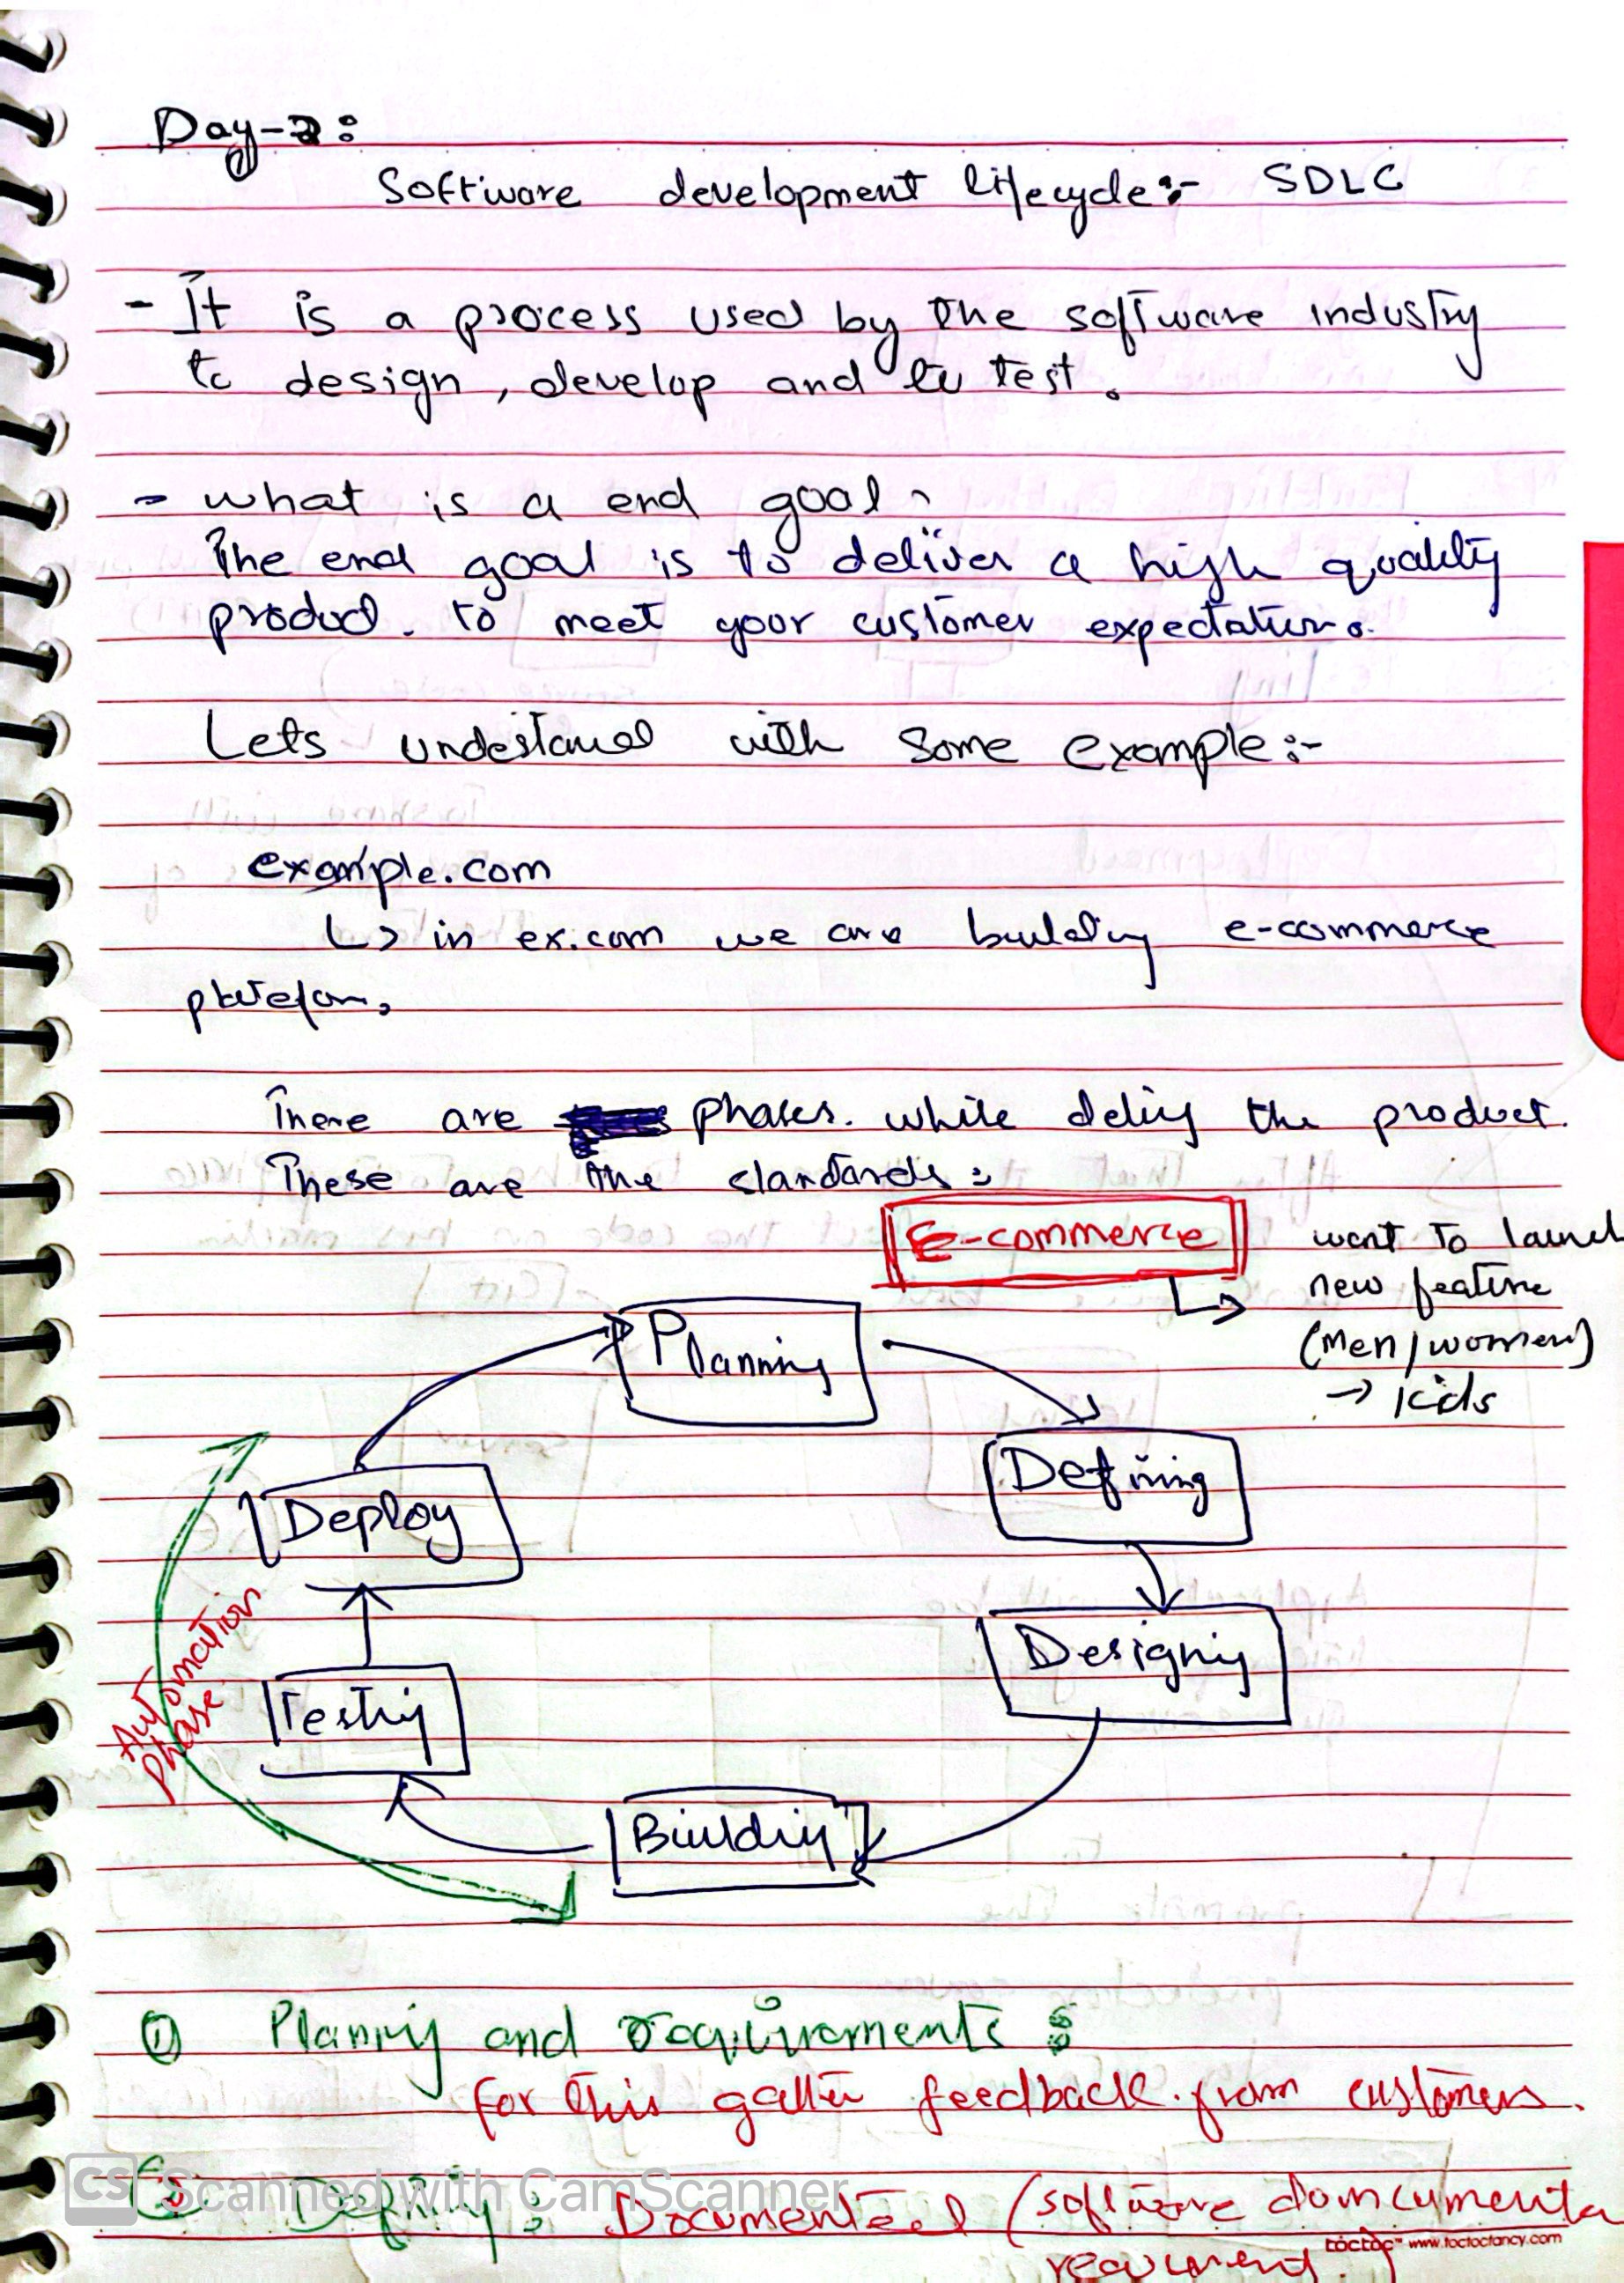 Day-2:
Software development lifecycle:- SDLC
- It is a process used by the software industry
to design, develop and to test.
- what is a end goal?
The end goal is to deliver a high quality
product. to meet your customer expectations.
Lets undestand with some example:-
example.com
↳ in ex.com we are building e-commerce
plateform.
There are phases. while delivg the product.
These are the standards:
E-commerce
want to launch
new feature
(men/women)
→ kids
Planning
Defining
Designing
Building
Testing
Deploy
Automation
phase
① Planning and requirements:
for this gather feedback from customers.
② Defining: Documented (software
toctoc www.toctocfancy.com
CS Scanned with CamScanner